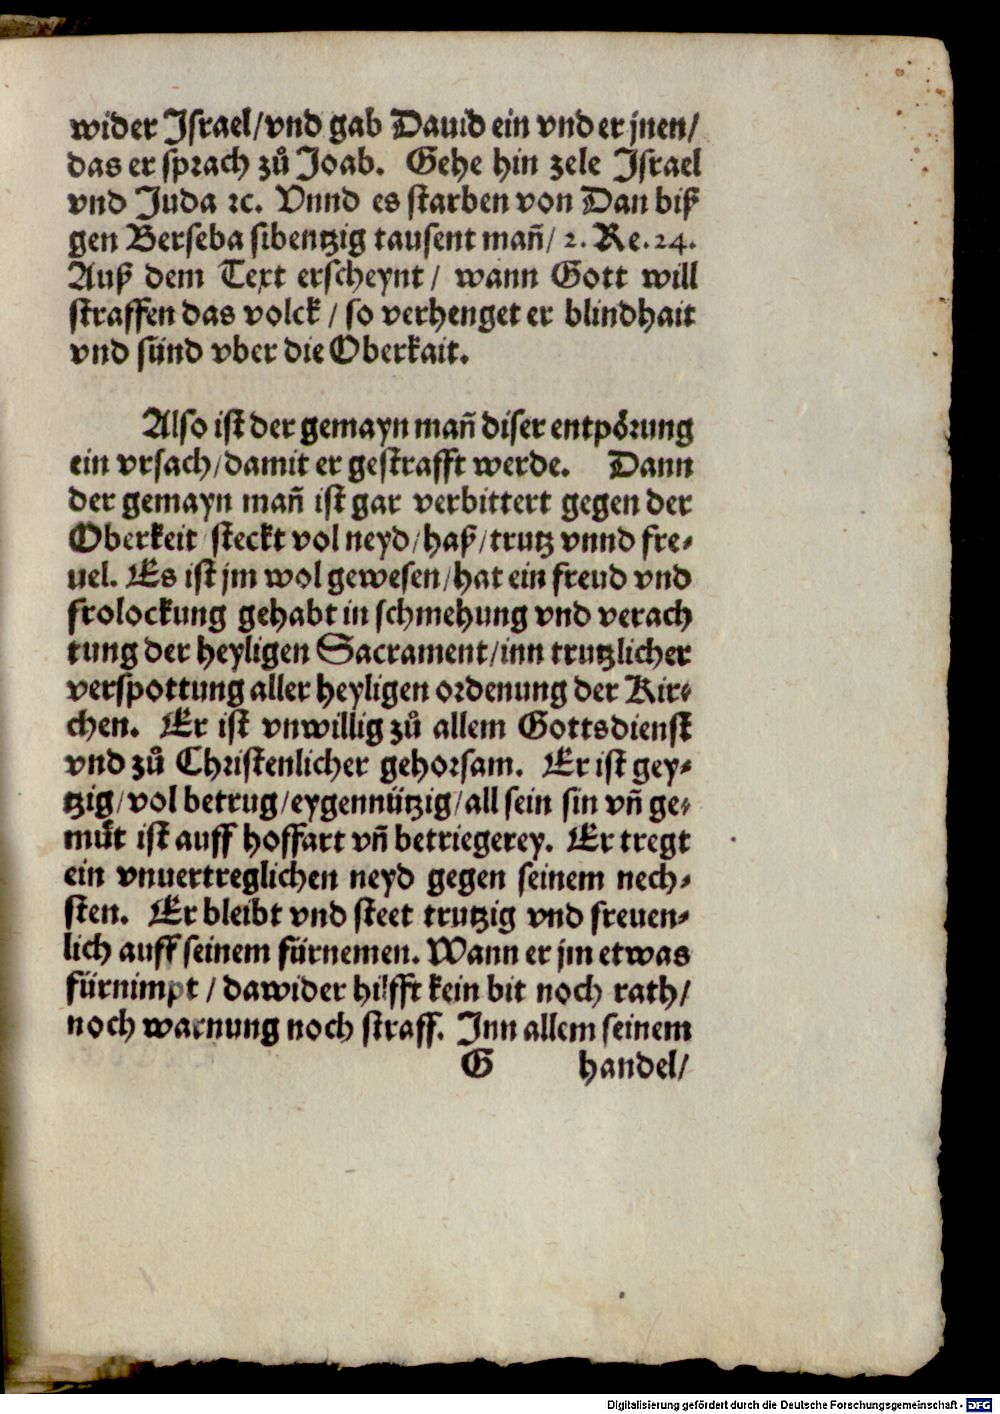 wider Israel/vnd gab Dauid ein vnder jnen/
das er sprach zů Joab. Gehe hin zele Israel
vnd Juda ꝛc. Vnnd es starben von Dan biß
gen Berseba sibentzig tausent mañ/ 2. Re. 24.
Auß dem Text erscheynt/ wann Gott will
straffen das volck / so verhenget er blindhait
vnd sünd vber die Oberkait.
Also ist der gemayn mañ diser entpörung
ein vrsach/damit er gestrafft werde. Dann
der gemayn mañ ist gar verbittert gegen der
Oberkeit/steckt vol neyd/haß/trutz vnnd fre-
uel. Es ist jm wol gewesen/hat ein freud vnd
frolockung gehabt in schmehung vnd verach
tung der heyligen Sacrament/inn trutzlicher
verspottung aller heyligen ordenung der Kir-
chen. Er ist vnwillig zů allem Gottsdienst
vnd zů Christenlicher gehorsam. Er ist gey-
tzig/vol betrug/eygennützig/all sein sin vñ ge-
müt ist auff hoffart vñ betriegerey. Er tregt
ein vnuertreglichen neyd gegen seinem nech-
sten. Er bleibt vnd steet trutzig vnd freuen-
lich auff seinem fürnemen. Wann er jm etwas
fürnimpt / dawider hilfft kein bit noch rath/
noch warnung noch straff. Inn allem seinem
G handel/
Digitalisierung gefördert durch die Deutsche Forschungsgemeinschaft - DFG